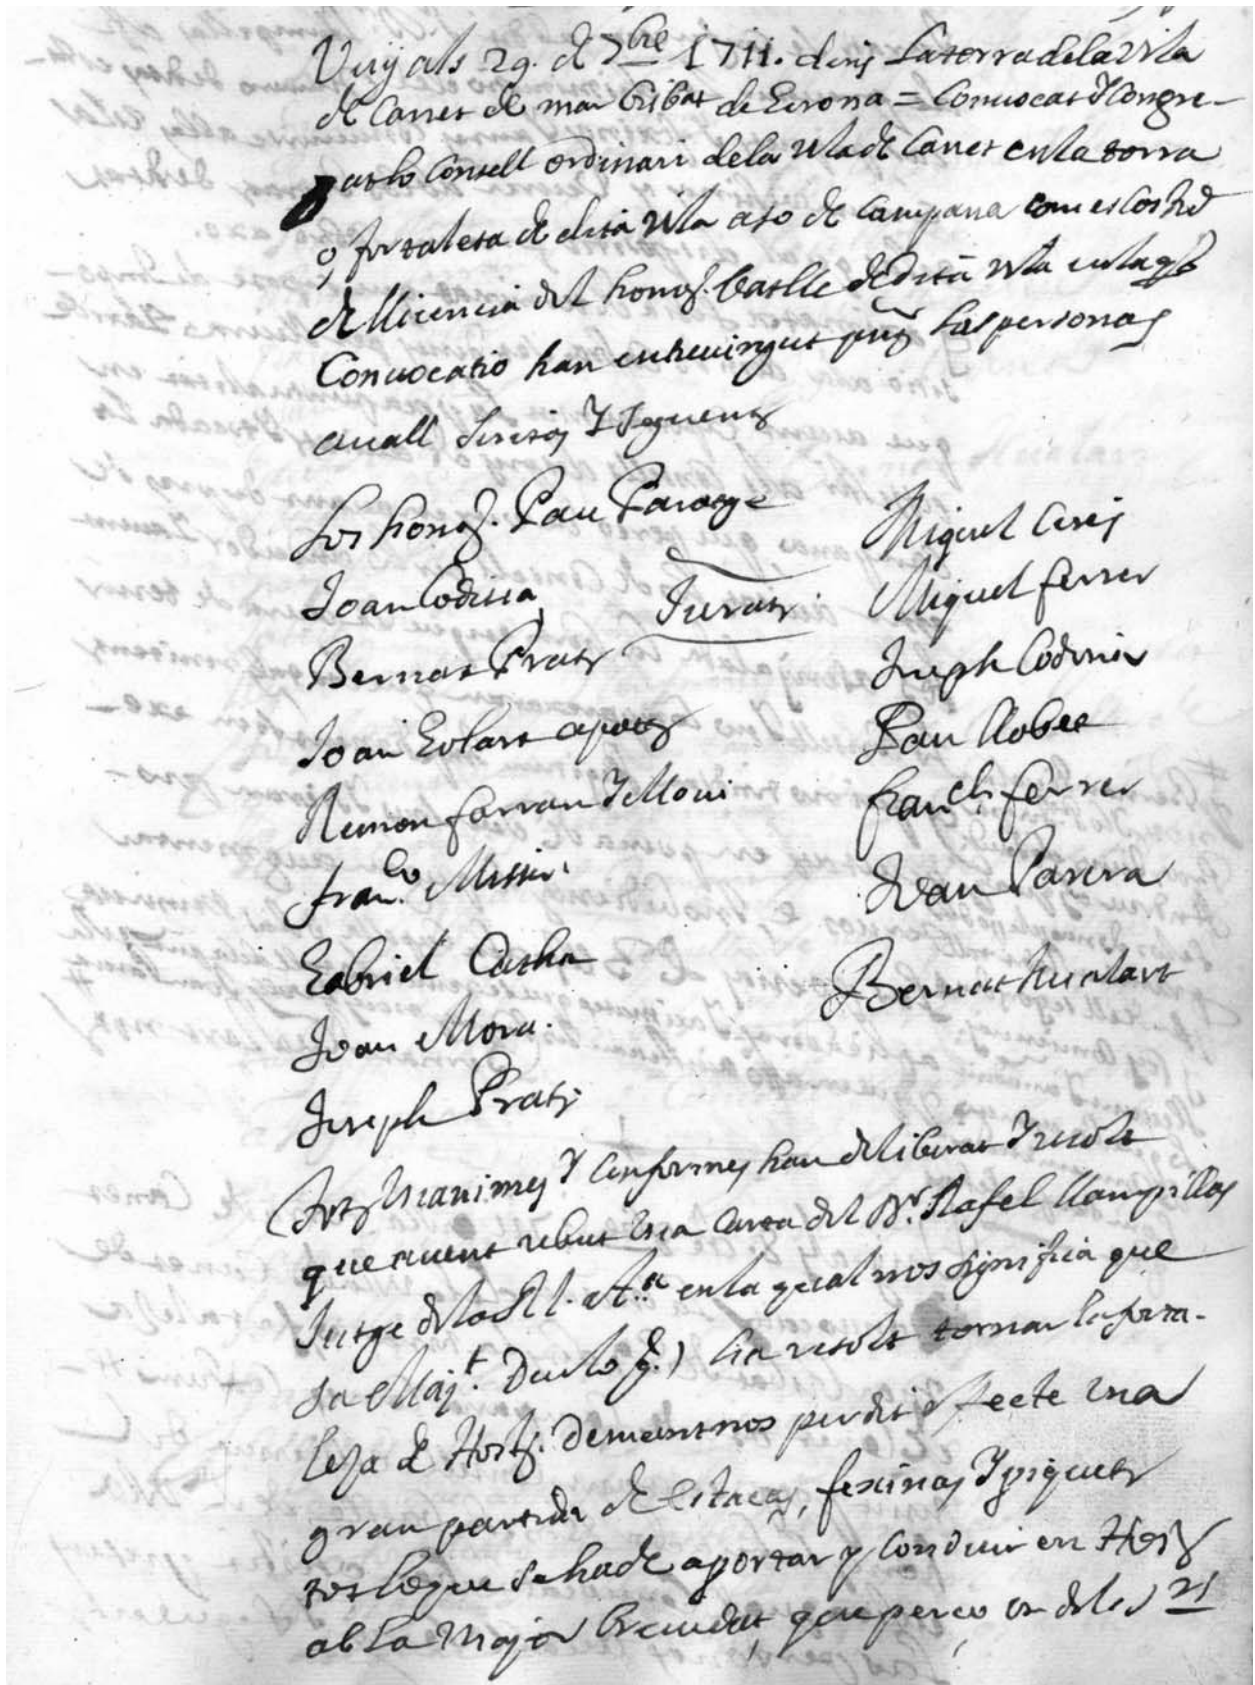 Vuy als 29. de 7bre 1711. dins La torra dela Vila
de Canet de mar Bisbat de Gerona = Convocat Y Congre-
gat lo Consell ordinari dela vila de Canet en la torra
o fortalesa de dita vila aso de Campana com es Costũ
de llicencia del honor. Batlle de dita vila en la ql
Convocatio han entrevingut pnts las personas
avall scritas Y seguents
Los honors. Pau
Joan Codina
Jurats
Bernat Prats
Joan Gibart apotz
Remon Farran Y Moni
franco. Misser
Gabriel Catha
Joan Mora.
Joseph Prats
Miquel
Miquel ferrer
Joseph Codina
Pau Robet
franch ferrer
Joan Parera
Bernat
Tots Unanimes Y Conformes han deliberat Y resolt
que avent rebut Una Carta del Dr. Rafel Llampillas
Jutge de la Rl. Ata en la qual nos significa que
sa Majt. Deu lo g.) ha resolt tornar la forta-
lesa de Hosts. Demanantnos per dit effecte una
gran partida de Estacas, fexinas Y piquets
tot lo que se ha de aportar y conduir en Hosts
ab La Major brevedat que perço